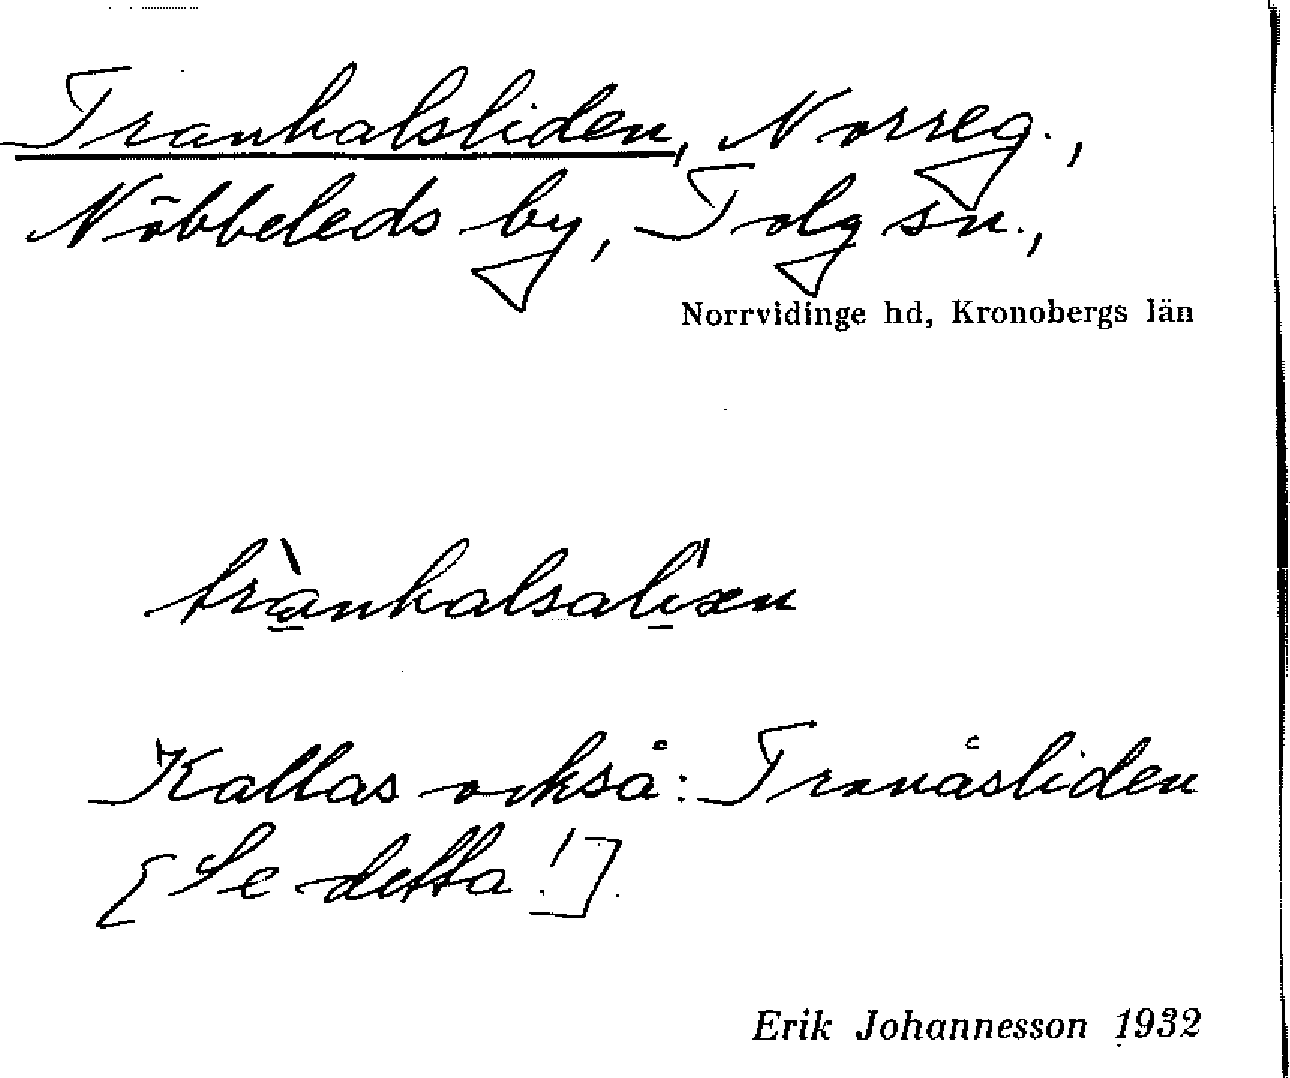 Tranhalsliden, Norreg.,
Nöbbeleds by, Tolg sn.,
Norrvidinge hd, Kronobergs län
trànhalsalixn
Kallas också: Tranåsliden
[Se detta!].
Erik Johannesson 1932